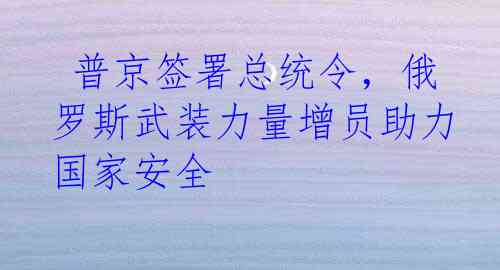 普京签署总统令，俄
罗斯武装力量增员助力
国家安全